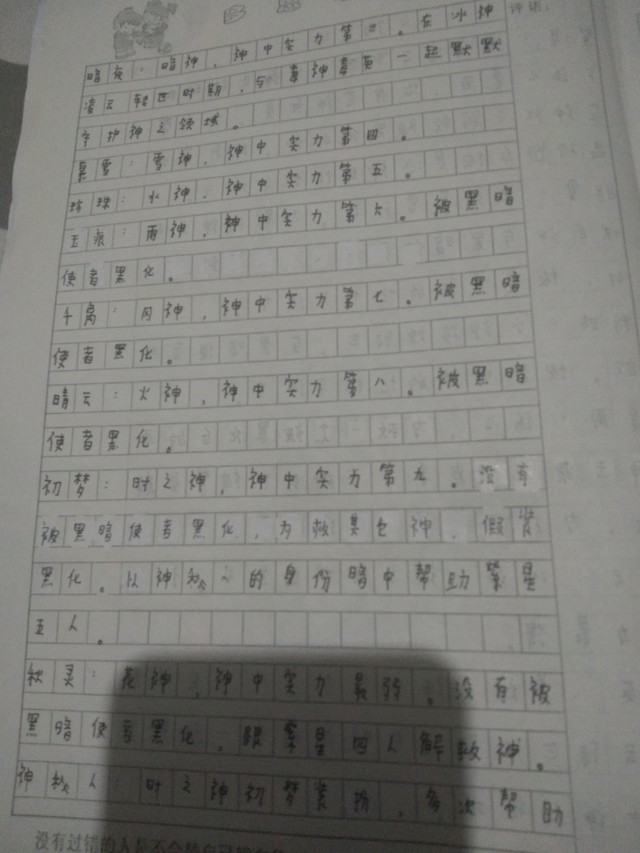 评语:
暗夜:暗神,神中实力第三。在冰神
凌云转世时期,与毒神毒苑一起默默
守护神之领域。
暮雪:雪神,神中实力第四。
珍珠:水神,神中实力第五。
玉痕:雨神,神中实力第六。被黑暗
使者黑化。
千禹:风神,神中实力第七。被黑暗
使者黑化。
晴云:火神,神中实力第八。被黑暗
使者黑化。
初梦:时之神,神中实力第九。没有
被黑暗使者黑化,为救其它神,假装
黑化。以神秘人的身份暗中帮助紫星
五人。
秋灵:花神,神中实力最弱。没有被
黑暗使者黑化,跟紫星四人解救神。
神秘人:时之神初梦装扮,多次帮助
没有过错的人是不会